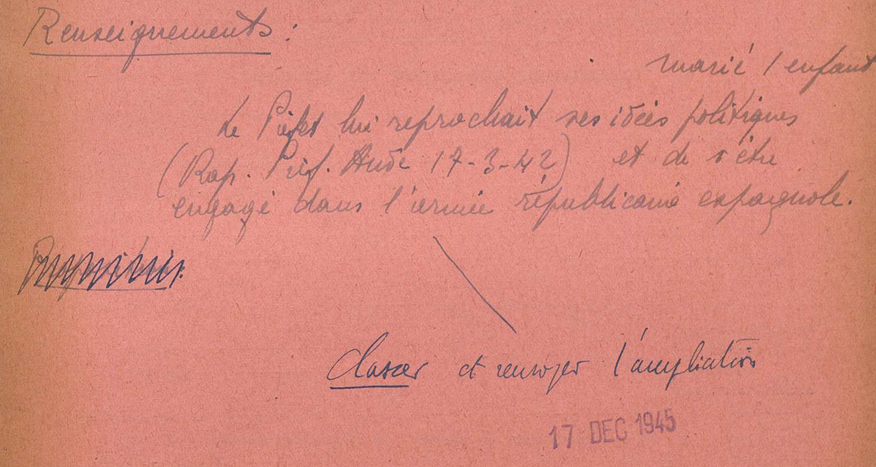 Renseignements :
marié 1 enfant
Le Préfet lui reprochait ses idées politiques
(Rap. Préf. Aude 17-3-42) et de s'être
engagé dans l'armée républicaine espagnole.
Classer et renvoyer l'ampliation
17 DEC 1945